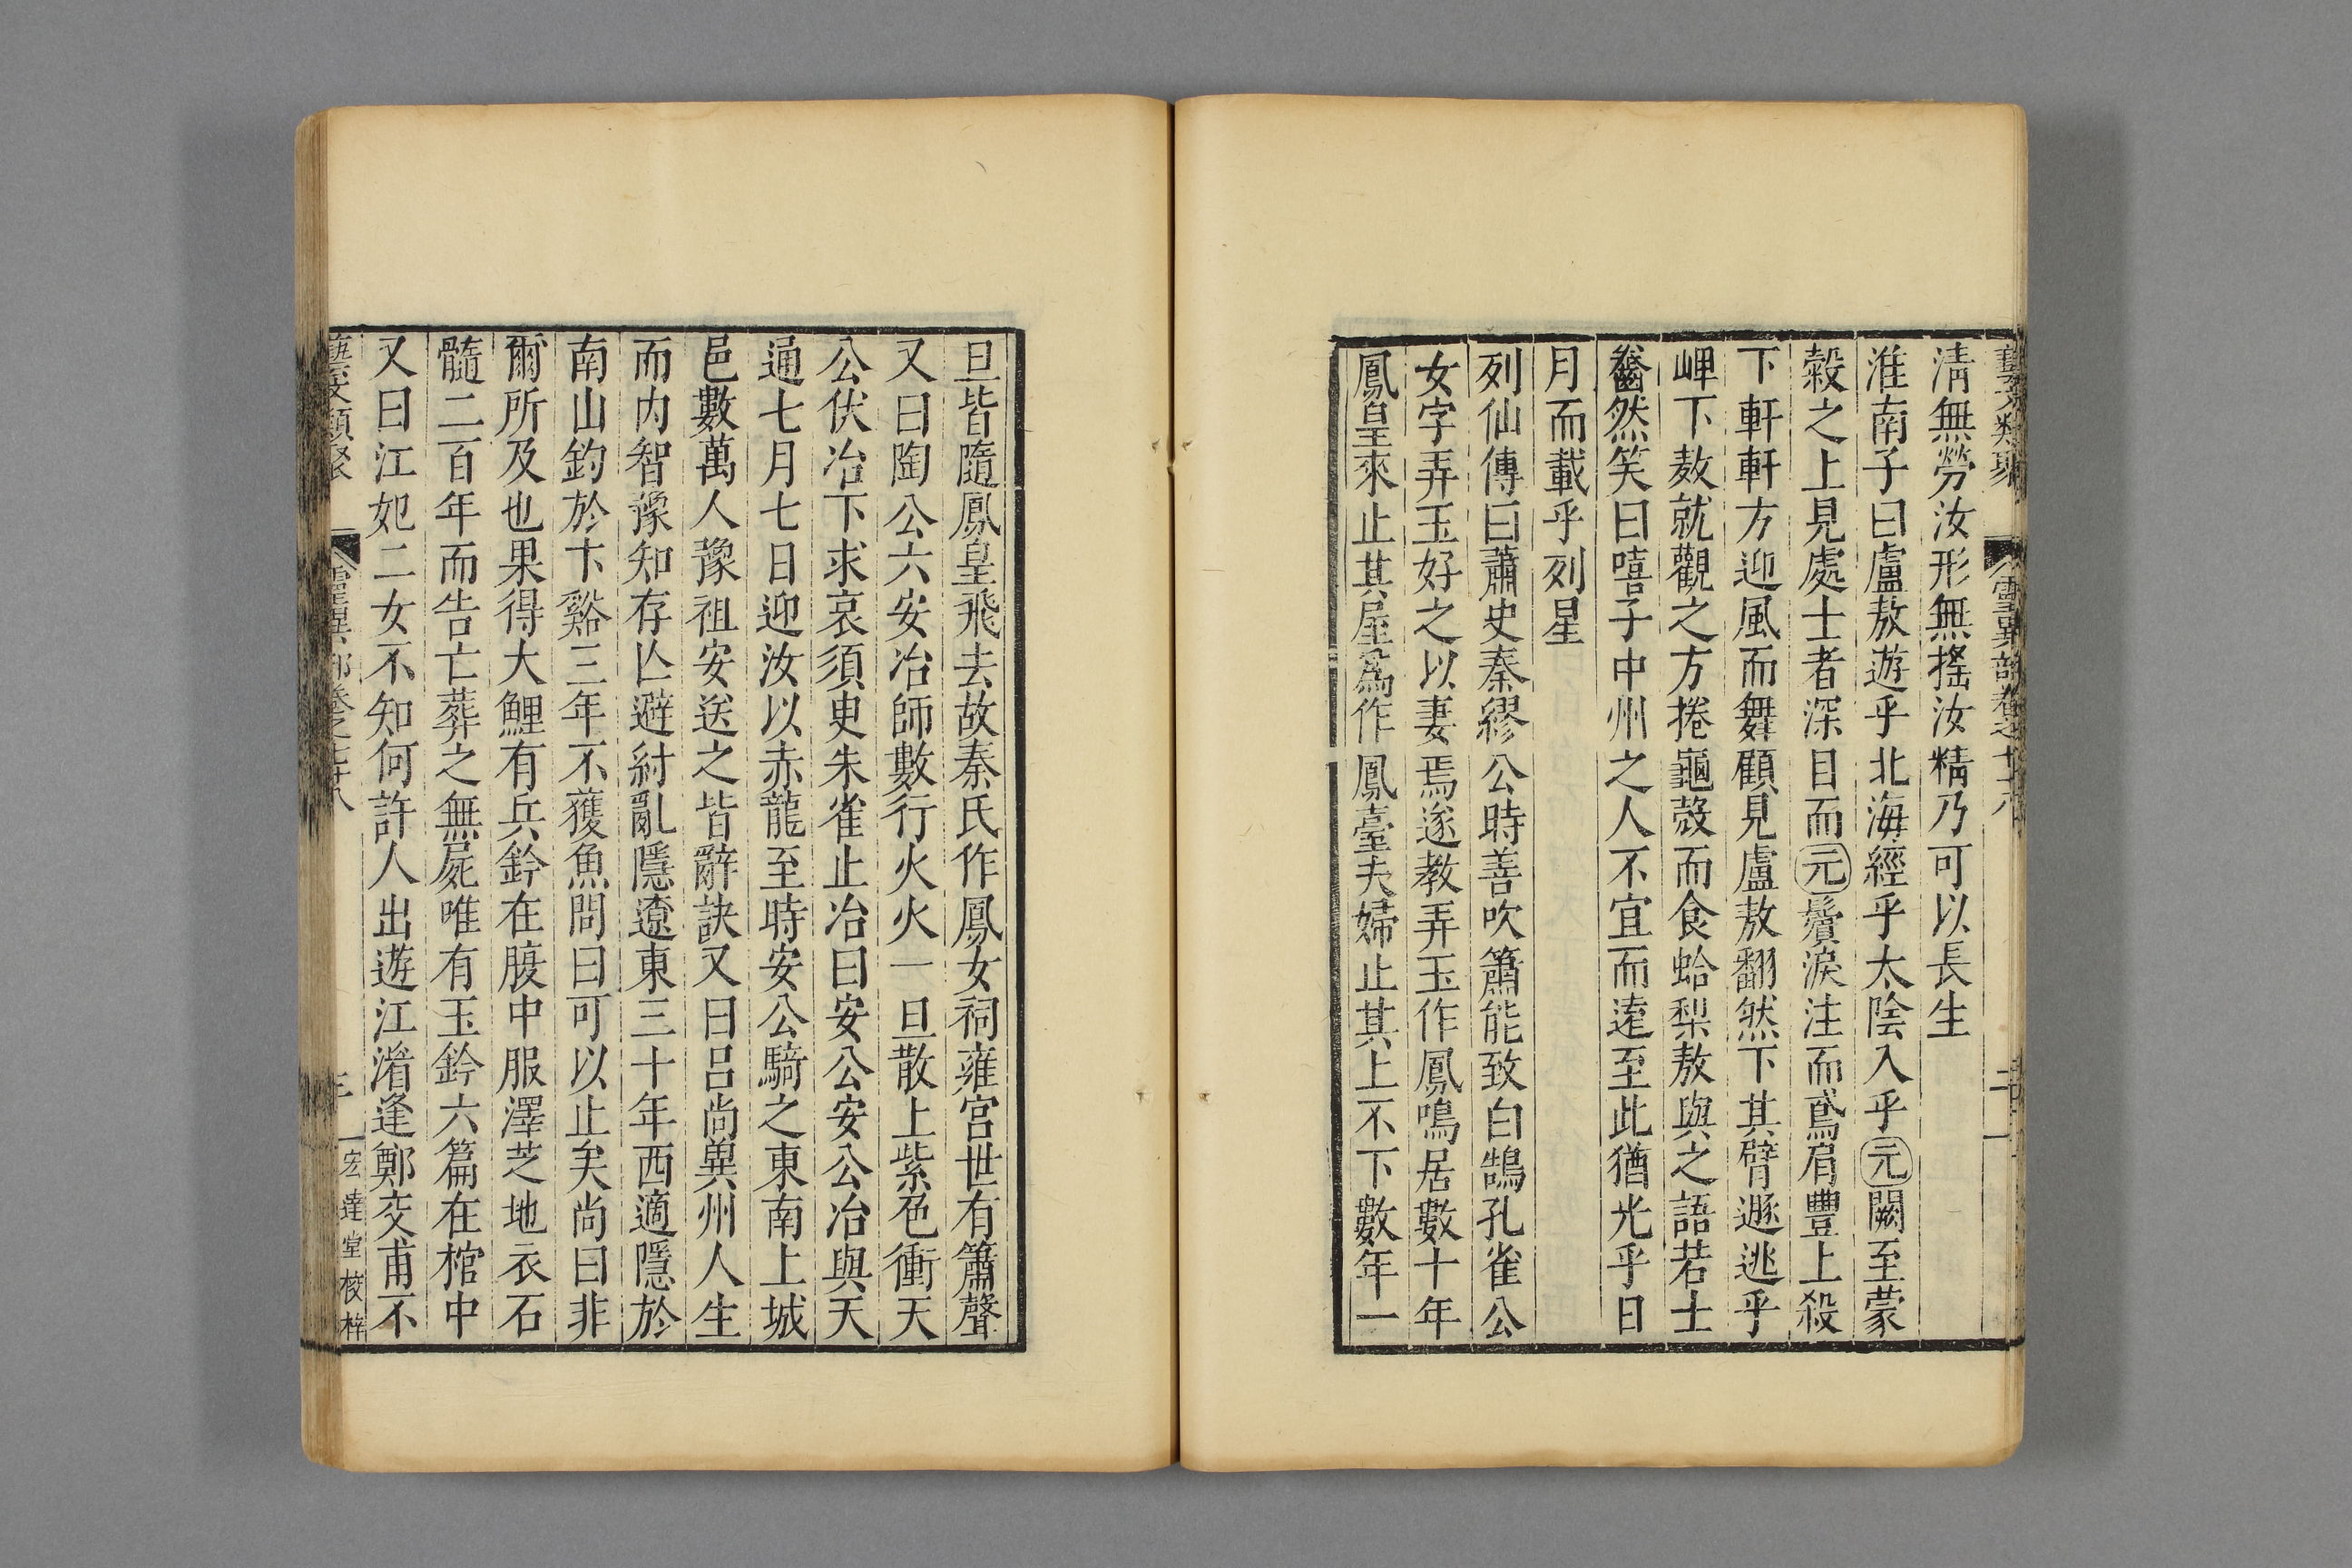 藝文類聚 靈異部卷之七十八 二
淸無勞汝形無搖汝精乃可以長生
淮南子曰盧敖遊乎北海經乎太陰入乎元闕至蒙
穀之上見處士者深目而元鬢淚注而鳶肩豐上殺
下軒軒方迎風而舞顧見盧敖翻然下其臂遯逃乎
岬下敖就觀之方捲龜殼而食蛤梨敖與之語若士
齤然笑曰嘻子中州之人不宜而遠至此猶光乎日
月而載乎列星
列仙傳曰蕭史秦繆公時善吹簫能致白鵠孔雀公
女字弄玉好之以妻焉遂教弄玉作鳳鳴居數十年
鳳皇來止其屋爲作鳳臺夫婦止其上不下數年一
旦皆隨鳳皇飛去故秦氏作鳳女祠雍宮世有簫聲
又曰陶公六安冶師數行火火一旦散上紫色衝天
公伏冶下求哀須臾朱雀止冶曰安公安公冶與天
通七月七日迎汝以赤龍至時安公騎之東南上城
邑數萬人豫祖安送之皆辭訣又曰呂尚兾州人生
而内智豫知存亾避紂亂隱遼東三十年西適隱於
南山釣於卞谿三年不獲魚問曰可以止矣尚曰非
爾所及也果得大鯉有兵鈐在腹中服澤芝地衣石
髓二百年而告亡葬之無屍唯有玉鈐六篇在棺中
又曰江妃二女不知何許人出遊江湄逢鄭交甫不
藝文類聚 靈異部卷之七十八 三 宏達堂校梓